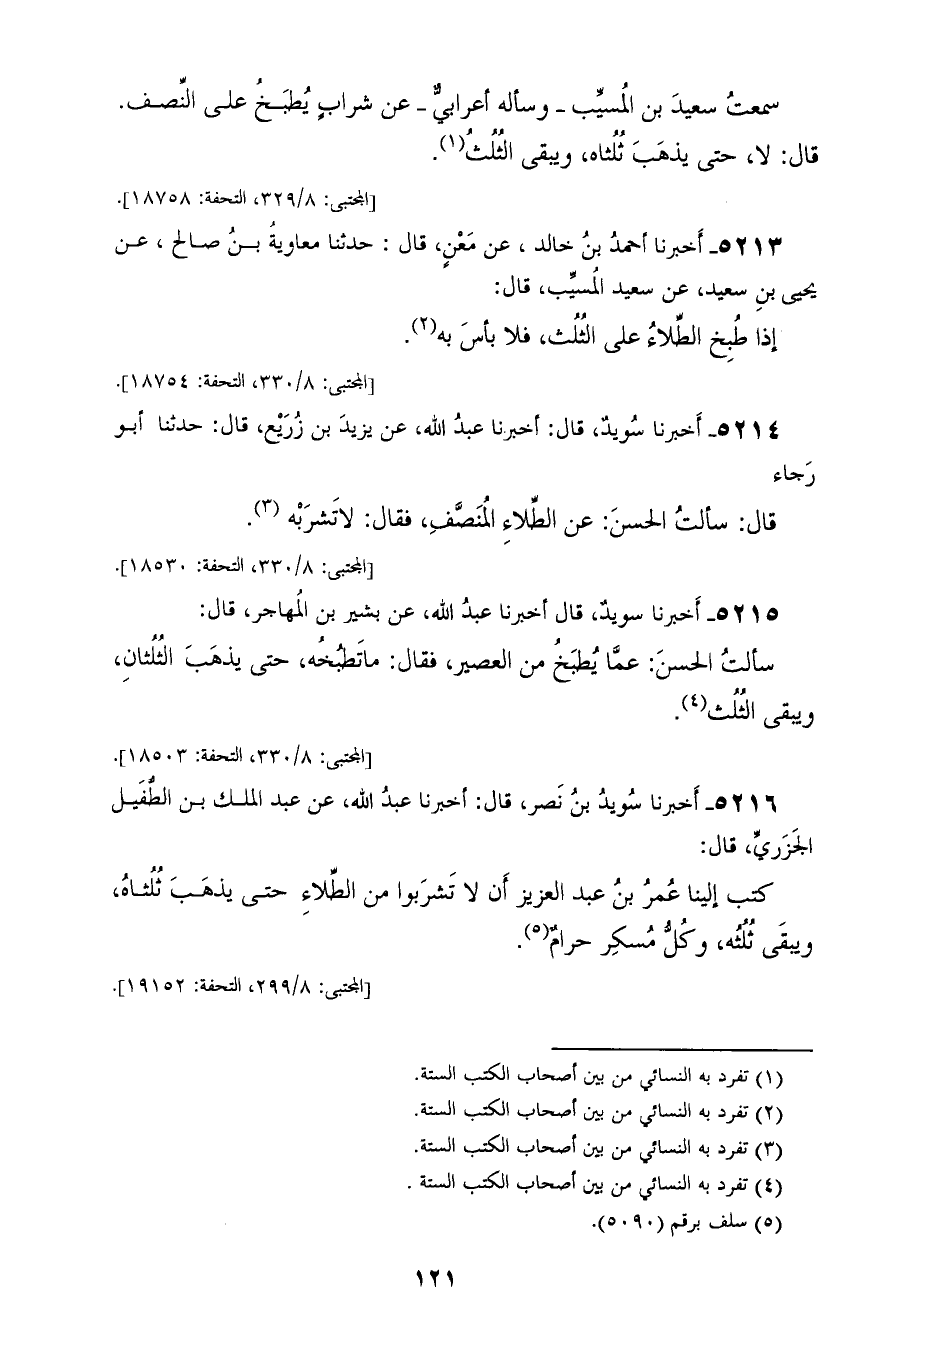 سمعتُ سعيدَ بن المُسيِّب ـ وسأله أعرابيٌّ ـ عن شرابٍ يُطبَخُ على النِّصف.
قال: لا، حتى يذهَبَ ثُلُثاه، ويبقى الثُلُثُ(١).
[المجتبى: ٣٢٩/٨، التحفة: ١٨٧٥٨].
٥٢١٣ـ أَخبرنا أحمدُ بنُ خالد ، عن مَعْنٍ، قال : حدثنا معاويةُ بنُ صالح ، عن
يحيى بنِ سعيد، عن سعيد المُسيِّب، قال:
إذا طُبِخ الطِّلاءُ على الثُلُث، فلا بأسَ به(٢).
[المجتبى: ٣٣٠/٨، التحفة: ١٨٧٥٤].
٥٢١٤ـ أَخبرنا سُويدٌ، قال: أخبرنا عبدُ الله، عن يزيدَ بن زُرَيْع، قال: حدثنا أبو
رَجاء
قال: سألتُ الحسنَ: عن الطِّلاءِ المُنَصَّفِ، فقال: لاتَشرَبْه (٣).
[المجتبى: ٣٣٠/٨، التحفة: ١٨٥٣٠].
٥٢١٥ـ أَخبرنا سويدٌ، قال أخبرنا عبدُ الله، عن بشير بن المُهاجر، قال:
سألتُ الحسنَ: عمَّا يُطبَخُ من العصير، فقال: ماتَطبُخُه، حتى يذهَبَ الثُلُثانِ،
ويبقى الثُلُث(٤).
[المجتبى: ٣٣٠/٨، التحفة: ١٨٥٠٣].
٥٢١٦ـ أَخبرنا سُويدُ بنُ نَصر، قال: أخبرنا عبدُ الله، عن عبد الملك بن الطُّفَيل
الجَزَريِّ، قال:
كتب إلينا عُمرُ بنُ عبد العزيز أَن لا تَشرَبوا من الطِّلاءِ حتى يذهَبَ ثُلُثاهُ،
ويبقَى ثُلُثُه، وكُلُّ مُسكِر حرامٌ(٥).
[المجتبى: ٢٩٩/٨، التحفة: ١٩١٥٢].
(١) تفرد به النسائي من بين أصحاب الكتب الستة.
(٢) تفرد به النسائي من بين أصحاب الكتب الستة.
(٣) تفرد به النسائي من بين أصحاب الكتب الستة.
(٤) تفرد به النسائي من بين أصحاب الكتب الستة .
(٥) سلف برقم (٥٠٩٠).
١٢١